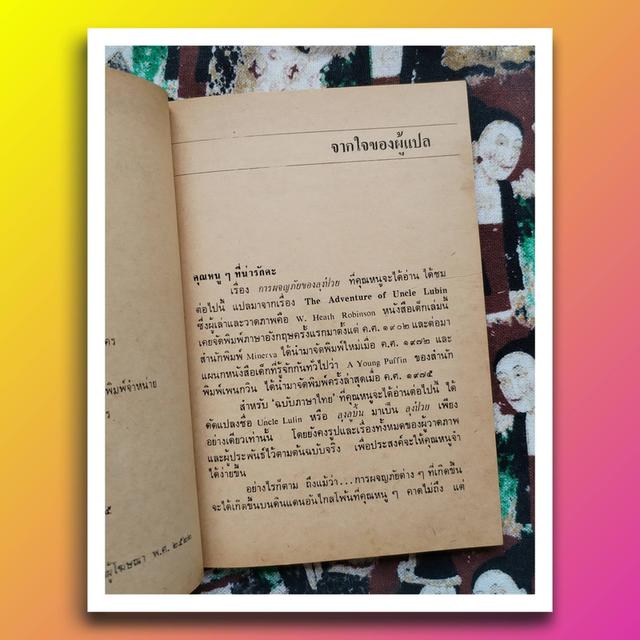 คร
พิมพ์จำหน่าย
ร
๕
ผู้โฆษณา พ.ศ. ๒๕๒๒
จากใจของผู้แปล
คุณหนู ๆ ที่น่ารักคะ
เรื่อง การผจญภัยของลุงป๋วย ที่คุณหนูจะได้อ่าน ได้ชม
ต่อไปนี้ แปลมาจากเรื่อง The Adventure of Uncle Lubin
ซึ่งผู้เล่าและวาดภาพคือ W. Heath Robinson หนังสือเด็กเล่มนี้
เคยจัดพิมพ์ภาษาอังกฤษครั้งแรกมาตั้งแต่ ค.ศ. ๑๙๐๒ และต่อมา
สำนักพิมพ์ Minerva ได้นำมาจัดพิมพ์ใหม่เมื่อ ค.ศ. ๑๙๗๒ และ
แผนกหนังสือเด็กที่รู้จักกันทั่วไปว่า A Young Puffin ของสำนัก
พิมพ์เพนกวิน ได้นำมาจัดพิมพ์ครั้งล่าสุดเมื่อ ค.ศ. ๑๙๗๕
สำหรับ 'ฉบับภาษาไทย' ที่คุณหนูจะได้อ่านต่อไปนี้ ได้
ดัดแปลงชื่อ Uncle Lulin หรือ ลุงลูบิ้น มาเป็น ลุงป๋วย เพียง
อย่างเดียวเท่านั้น โดยยังคงรูปและเรื่องทั้งหมดของผู้วาดภาพ
และผู้ประพันธ์ไว้ตามต้นฉบับจริง เพื่อประสงค์จะให้คุณหนูจำ
ได้ง่ายขึ้น
อย่างไรก็ตาม ถึงแม้ว่า...การผจญภัยต่าง ๆ ที่เกิดขึ้น
จะได้เกิดขึ้นบนดินแดนอันไกลโพ้นที่คุณหนู ๆ คาดไม่ถึง แต่